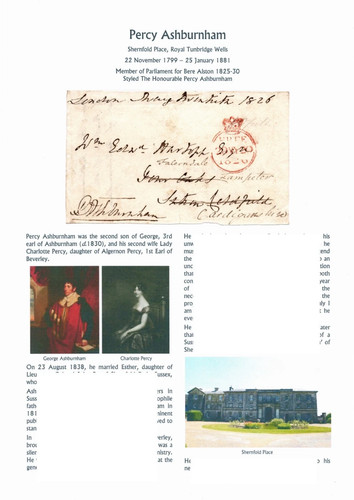 Percy Ashburnham
Shernfold Place, Royal Tunbridge Wells
22 November 1799 – 25 January 1881
Member of Parliament for Bere Alston 1825-30
Styled The Honourable Percy Ashburnham
London 1826
Wm Edwd Hartopp Esqre
Falcondale
Four Oaks Lampeter
Sutton Coldfield
Cardiganshire
P Ashburnham
FREE
1826
Percy Ashburnham was the second son of George, 3rd
earl of Ashburnham (d.1830), and his second wife Lady
Charlotte Percy, daughter of Algernon Percy, 1st Earl of
Beverley.
George Ashburnham
Charlotte Percy
On 23 August 1838, he married Esther, daughter of
Lieu
ssex,
who
Ash
ers in
Suss
ophile
fath
am in
181
inent
pub
ved to
stan
In
erley,
bro
was a
siler
nistry.
He
at the
gene
He
his
wer
end
the
an
und
oth
con
year
of
the
nec
the
pro
ly I
am
he
eve
He
ater
tha
of a
Suss
of
She
Shernfold Place
He
o his
ne